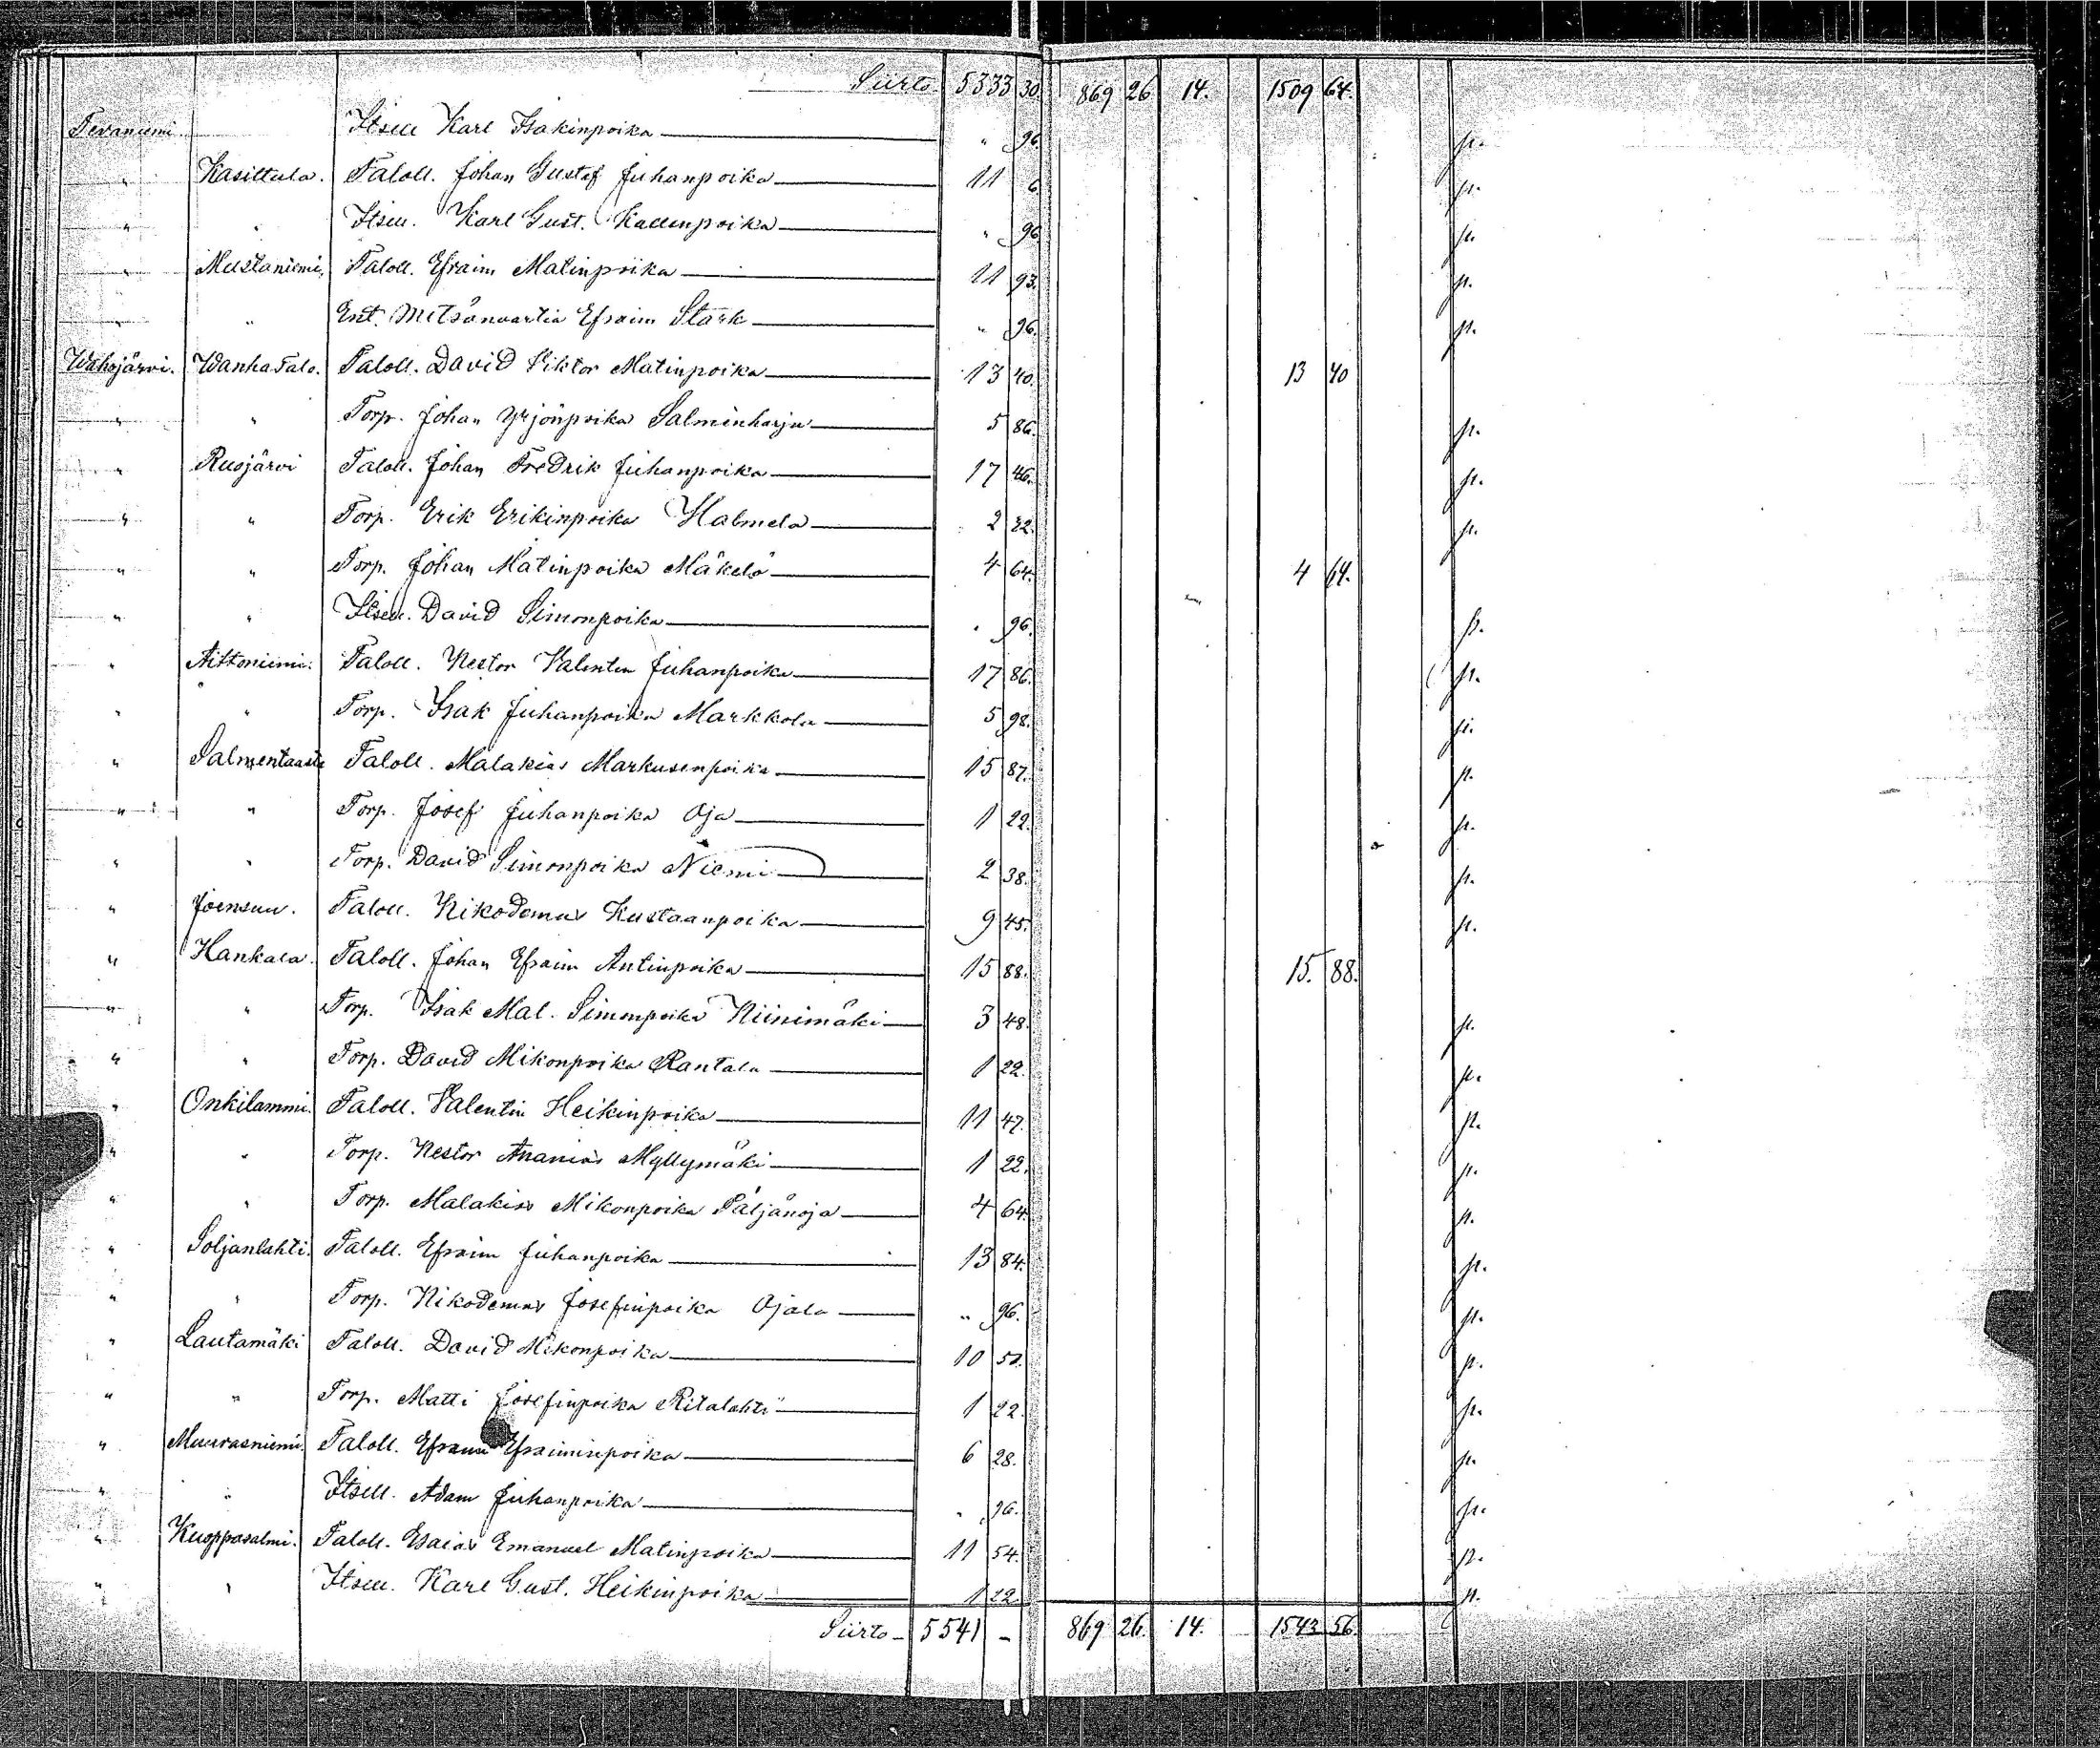 Siirto 5333 30. 869 26 14. 1509 64.
Tevaniemi Itsell Karl Isakinpoika " 96. p.
" Kasittula. Taloll. Johan Gustaf Juhanpoika 11 6 p.
" " Itsell. Karl Gust. Kallenpoika " 96 p.
" Mustaniemi, Taloll. Efraim Matinpoika 11 93. p.
" " Ent. Metsänvartia Efraim Stark " 96. p.
Wahojärvi. Wanha Talo. Taloll. David Viktor Matinpoika 13 40. 13 40
" " Torp. Johan Yrjönpoika Salmenharju 5 86. p.
" Ruojärvi Taloll. Johan Fredrik Juhanpoika 17 46. p.
" " Torp. Erik Erikinpoika Halmela 2 32. p.
" " Torp. Johan Matinpoika Mäkelä 4 64. 4 64.
" " Itsell. David Simonpoika " 96. p.
" Aittoniemi. Taloll. Nestor Valentin Juhanpoika 17 86. p.
" " Torp. Isak Juhanpoika Markkola 5 98. p.
" Salmentaasta Taloll. Malakias Markusenpoika 15 87. p.
" " Torp. Josef Juhanpoika Oja 1 22. p.
" " Torp. David Simonpoika Niemi 2 38. p.
" Joensuu. Taloll. Nikodemus Kustaanpoika 9 45. p.
" Hankala. Taloll. Johan Efraim Antinpoika 15 88. 15. 88.
" " Torp. Isak Mal. Simonpoika Niinimäki 3 48. p.
" " Torp. David Mikonpoika Rantala 1 22. p.
" Onkilammi. Taloll. Valentin Heikinpoika 11 47. p.
" " Torp. Nestor Ananias Myllymäki 1 22. p.
" " Torp. Malakias Mikonpoika Päljänoja 4 64. p.
" Soljanlahti. Taloll. Efraim Juhanpoika 13 84. p.
" " Torp. Nikodemus Josefinpoika Ojala " 96. p.
" Lautamäki Taloll. David Mikonpoika 10 51. p.
" " Torp. Matti Josefinpoika Ritalahti 1 22. p.
" Muurasniemi. Taloll. Efraim Efraiminpoika 6 28. p.
" " Itsell. Adam Juhanpoika " 96. p.
" Kuoppasalmi. Taloll. Esaias Emanuel Matinpoika 11 54. p.
" " Itsell. Karl Gust. Heikinpoika 1 22 p.
Siirto - 5541 - 869 26. 14. 1543 56.